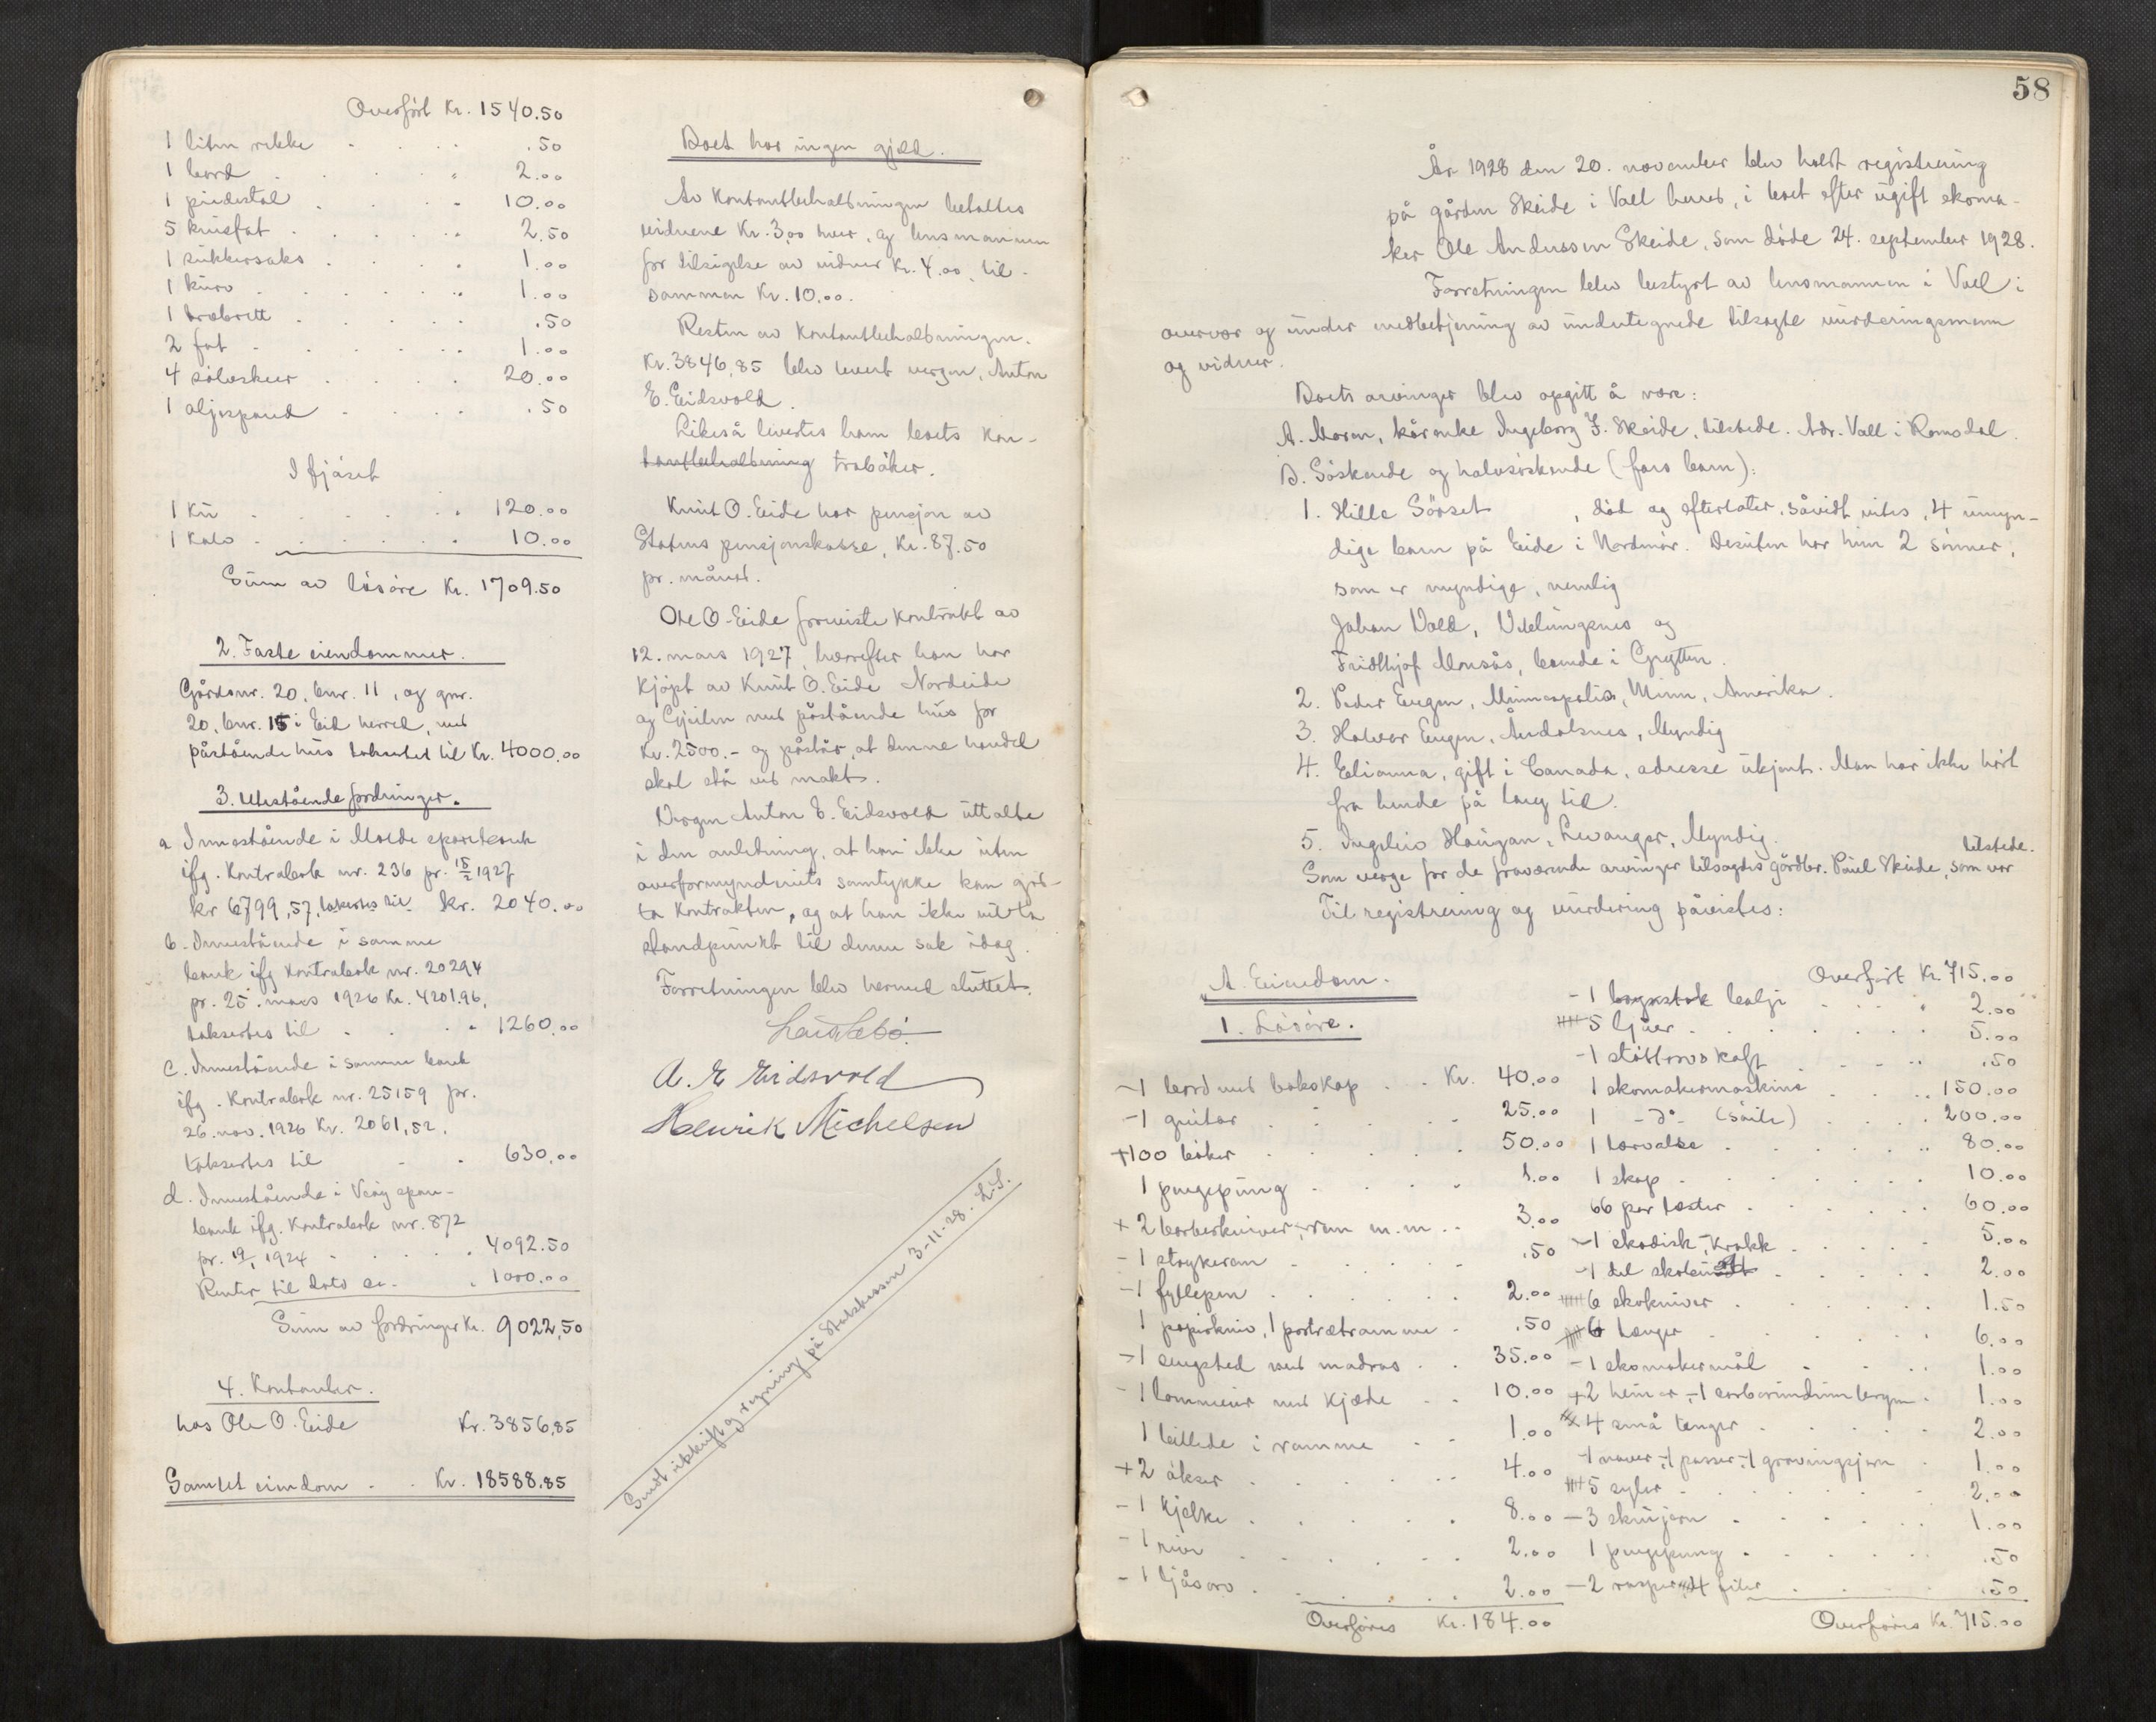 Overført Kr. 1540.50
1 liten rekke . . . . .50
1 bord . . . . 2.00
1 piedestal . . . . 10.00
5 krusfat . . . . 2.50
1 sukkersaks . . . . 1.00
1 kurv . . . . 1.00
1 brøbrett . . . . .50
2 fat . . . . 1.00
4 sølvskeer . . . . 20.00
1 oljespand . . . . .50
I fjöset
1 Ku . . . . 120.00
1 Kalv . . . . 10.00
Sum av lösöre Kr. 1709.50
2. Faste eiendommer.
Gårdsnr. 20, bnr. 11, og gnr.
20, bnr. 15 i Eid herred, med
påstående hus taksertes til Kr. 4000.00
3. Utestående fordringer.
a Innestående i Molde sparebank
ifg. Kontrabok nr. 236 pr. 15/2 1927
kr 6799,57, taksertes til kr. 2040.00
b. Innestående i samme
bank ifg Kontrabok nr. 20294
pr. 25. mars 1926 Kr. 4201.96,
taksertes til . . . 1260.00
c. Innestående i samme bank
ifg. Kontrabok nr. 25159 pr.
26. nov. 1926 Kr. 2061,52,
taksertes til . . 630.00
d. Innestående i Veöy spare-
bank ifg. Kontrabok nr. 872
pr. 1924 . . . . 4092.50
Renter til dato ca. . 1000.00
Sum av fordringer Kr. 9022,50
4. Kontanter.
hos Ole O. Eide Kr. 3856,85
Samlet eiendom . . Kr. 18588.85
Boet har ingen gjeld.
Av Kontantbeholdningen betaltes
vidnene Kr. 3,00 hver, og lensmannen
for tilsigelse av vidner Kr. 4.00, til-
sammen Kr. 10.00.
Resten av Kontantbeholdningen.
Kr. 3846,85 blev levert vergen, Anton
E. Eidsvold.
Likeså levertes ham boets kon-
tantbeholdning trabøker.
Knut O. Eide har pensjon av
Statens pensjonskasse, Kr. 87.50
pr. måned.
Ole O. Eide foreviste Kontrakt av
12. mars 1927, hvorefter han har
kjöpt av Knut O. Eide Nordeide
og Gjeilen med påstående hus for
Kr. 2500.- og påstår, at denne handel
skal stå ved makt.
Vergen Anton E. Eidsvold uttalte
i den anledning, at han ikke uten
overformynderiets samtykke kan god-
ta Kontrakten, og at han ikke vil ta
standpunkt til denne sak idag.
Forretningen blev hermed sluttet.
A. E Eidsvold
Henrik Michelsen
Sendt utskrift og regning på Statskassen 3-11-28. L.S.
58
År 1928 den 20. november blev holdt registrering
på gården Skeide i Voll herred, i boet efter ugift skoma-
ker Ole Anderssen Skeide, som döde 24. september 1928.
Forretningen blev bestyrt av lensmannen i Voll i
overvær og under medbetjening av undertegnede tilsagte vurderingsmenn
og vidner.
Boets arvinger blev opgitt å være:
A. Moren, kårenke Ingeborg J. Skeide, tilstede. Adr. Voll i Romsdal.
B. Söskende og halvsöskende (fars barn):
1. Hilla Sörset , död og efterlater, såvidt vites, 4 umyn-
dige barn på Eide i Nordmör. Desuten har hun 2 sönner,
som er myndige, nemlig
Johan Vold, Veblungsnes og
Fridthjof Monsås, boende i Grytten.
2. Peder Engen, Minneapolis, Minn, Amerika.
3. Halvor Engen, Åndalsnes, Myndig
4. Elianna, gift i Canada, adresse ukjent. Man har ikke hört
fra hende på lang tid.
5. Ingelius Haugan, Levanger, Myndig.
tilstede.
Som verge for de fraværende arvinger tilsagdes gårdbr. Paul Skeide, som var
Til registrering og vurdering påvistes:
A. Eiendom.
1. Lösöre.
-1 bord med bokskap . . Kr. 40.00
-1 guitar . . . . 25.00
+100 böker . . . . 50.00
1 pengepung . . . . 1.00
+2 barberkniver, rem m.m. . . 3.00
-1 strykerem . . . . .50
-1 fyllepen . . . . 2.00
1 papirkniv, 1 portrætramme . .50
-1 sengsted med madras . . 35.00
-1 lommeur med kjæde . . 10.00
1 billede i ramme . . 1.00
+2 økser . . . . 4.00
-1 kjelke . . . . 8.00
-1 rive . . . . 2.00
-1 ljåorv . . . . 2.00
Overføres Kr. 184.00
Overført Kr. 715.00
-1 bryestok balje . . . 2.00
5 ljåer . . . . 5.00
-1 . . . . .50
1 skomakermaskine . . . 150.00
1 -do- (såile) . . . . 200.00
1 lærvalse . . . . 80.00
1 skap . . . . 10.00
66 par læster . . . . 60.00
-1 skodisk, -krakk . . . . 5.00
-1 del . . . . 2.00
6 skokniver . . . . 1.50
6 tænger . . . . 6.00
-1 skomakermål . . . . 1.00
+2 heiner, -1 carborundum bryne . 1.00
4 små tænger . . . . 2.00
-1 naver, -1 passer, -1 gravingsjern . 1.00
5 syler . . . . 2.00
-3 skrujern . . . . 1.00
1 pengepung . . . . .50
-2 rasper, 4 filer . . . . .50
Overføres Kr. 715.00